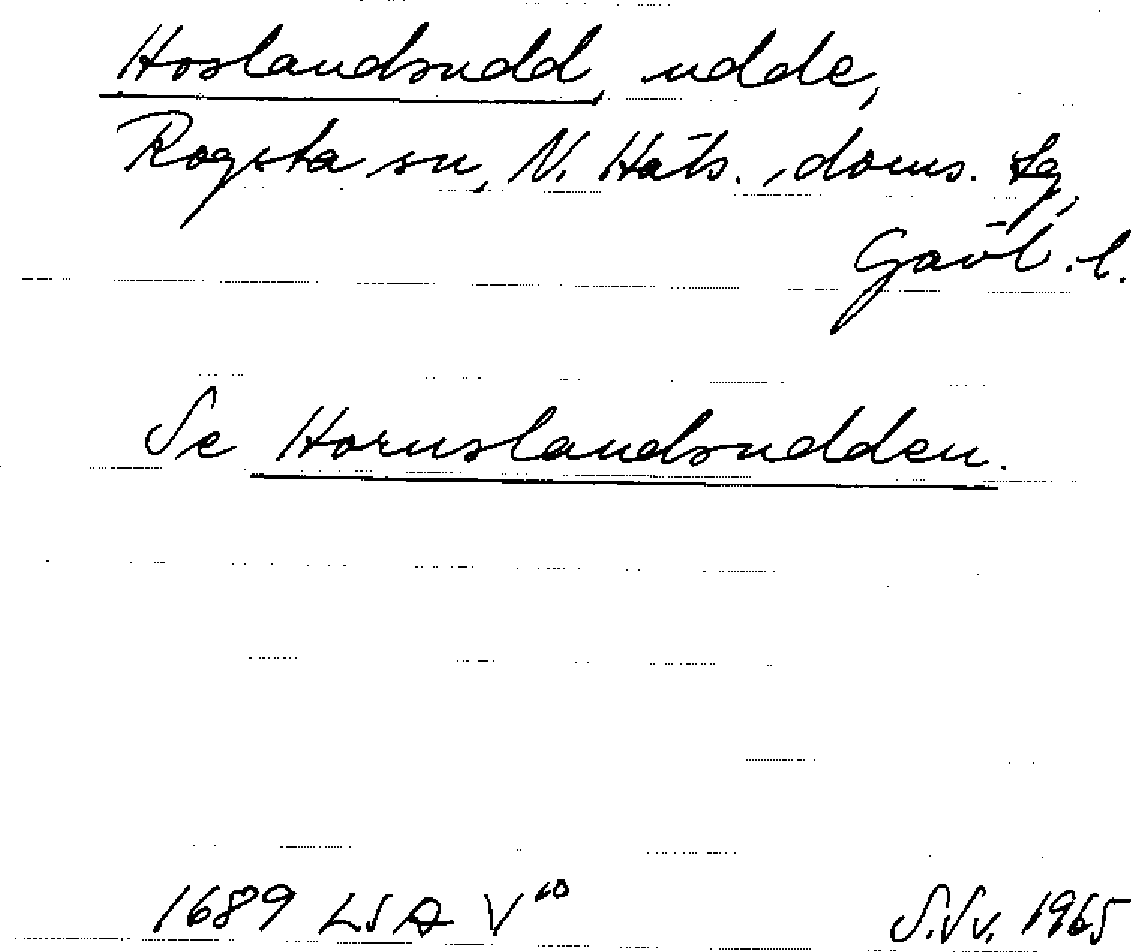 Hoslandsudd, udde,
Rogsta sn, N. Häls. doms. tg,
Gävl. l.
Se Hornslandsudden.
1689 LSA V 60
S.Sv. 1965